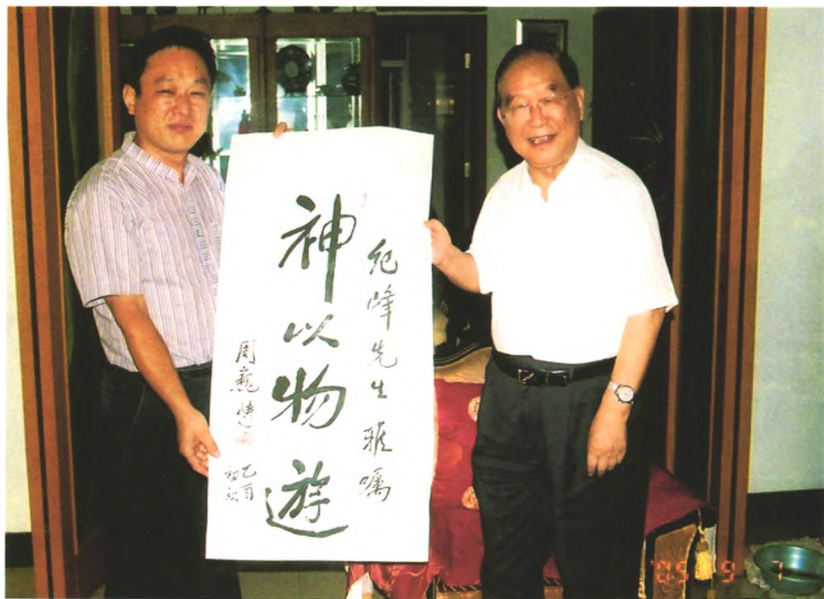 纪峰先生雅嘱
神以物游
周巍峙
乙酉初秋
'05 9 7